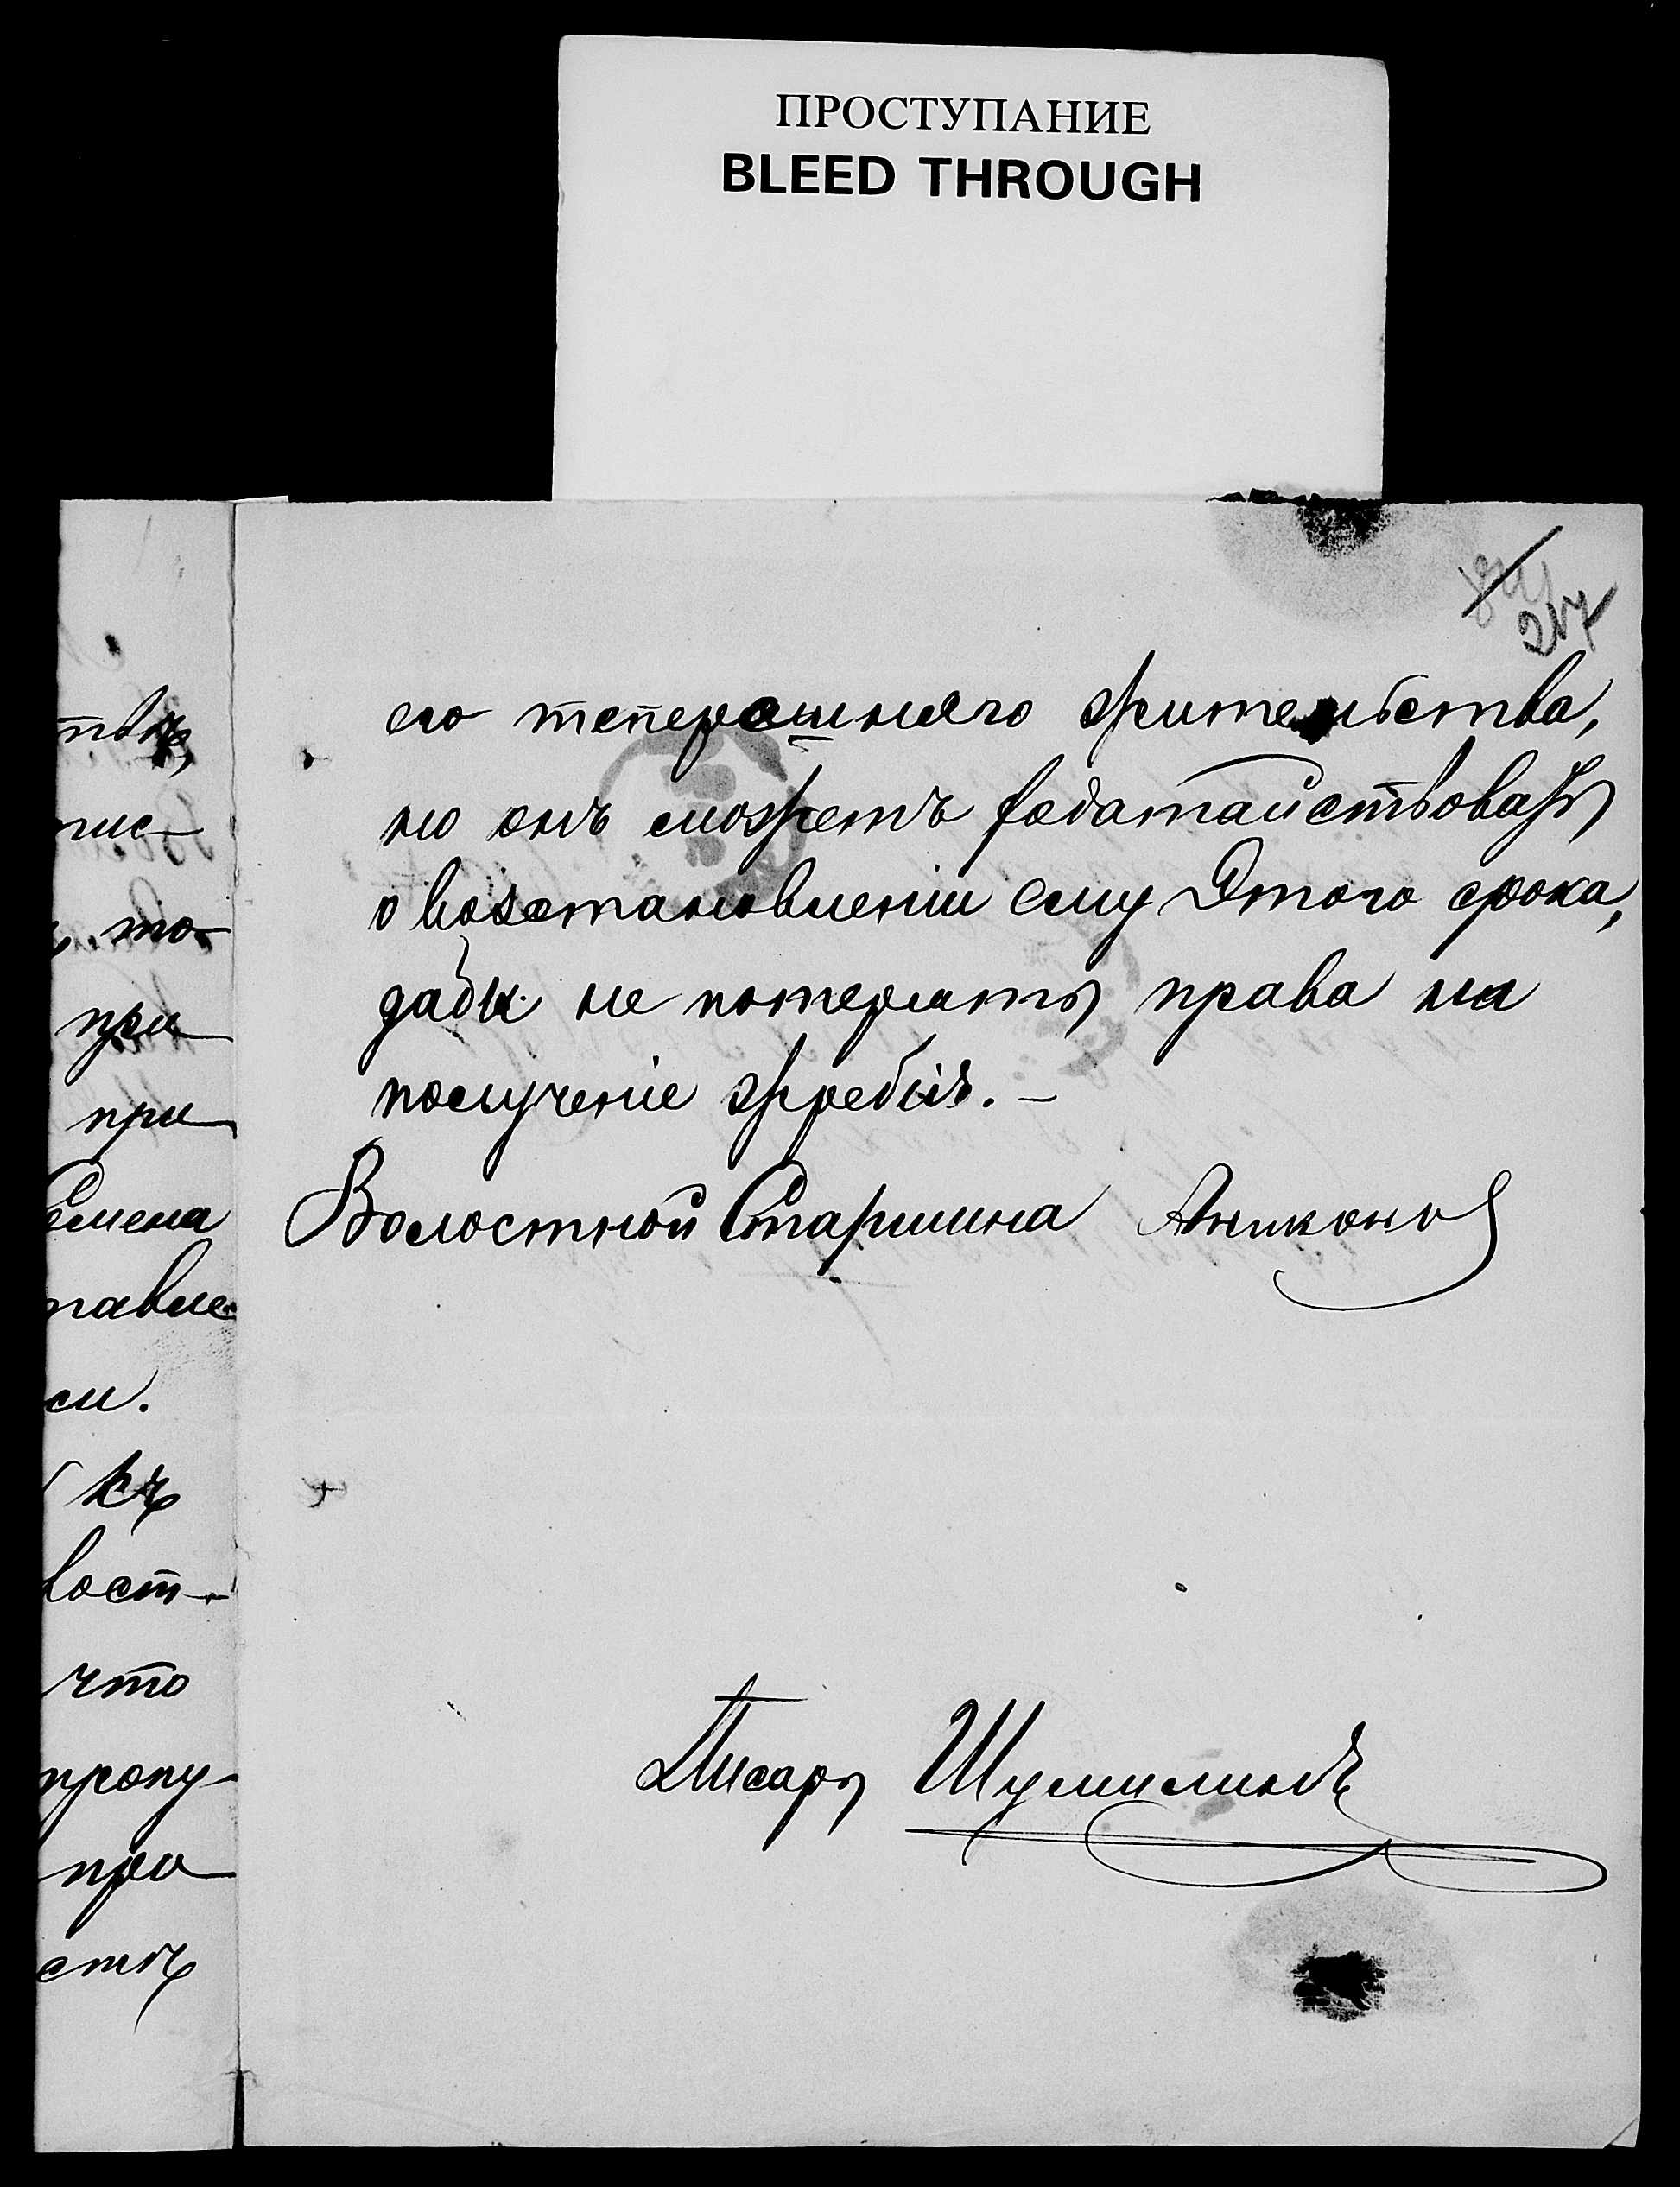 ПРОСТУПАНИЕ
BLEED THROUGH
217
его теперешняго жительства,
но онъ можетъ ходатайствовать
о возстановленіи ему этого срока,
дабы не потерять права на
полученіе жребія. —
Волостной Старшина Аниконов
Писарь Шумилинъ
то-
при
при
Семена
си.
къ
вост-
что
пропу-
при